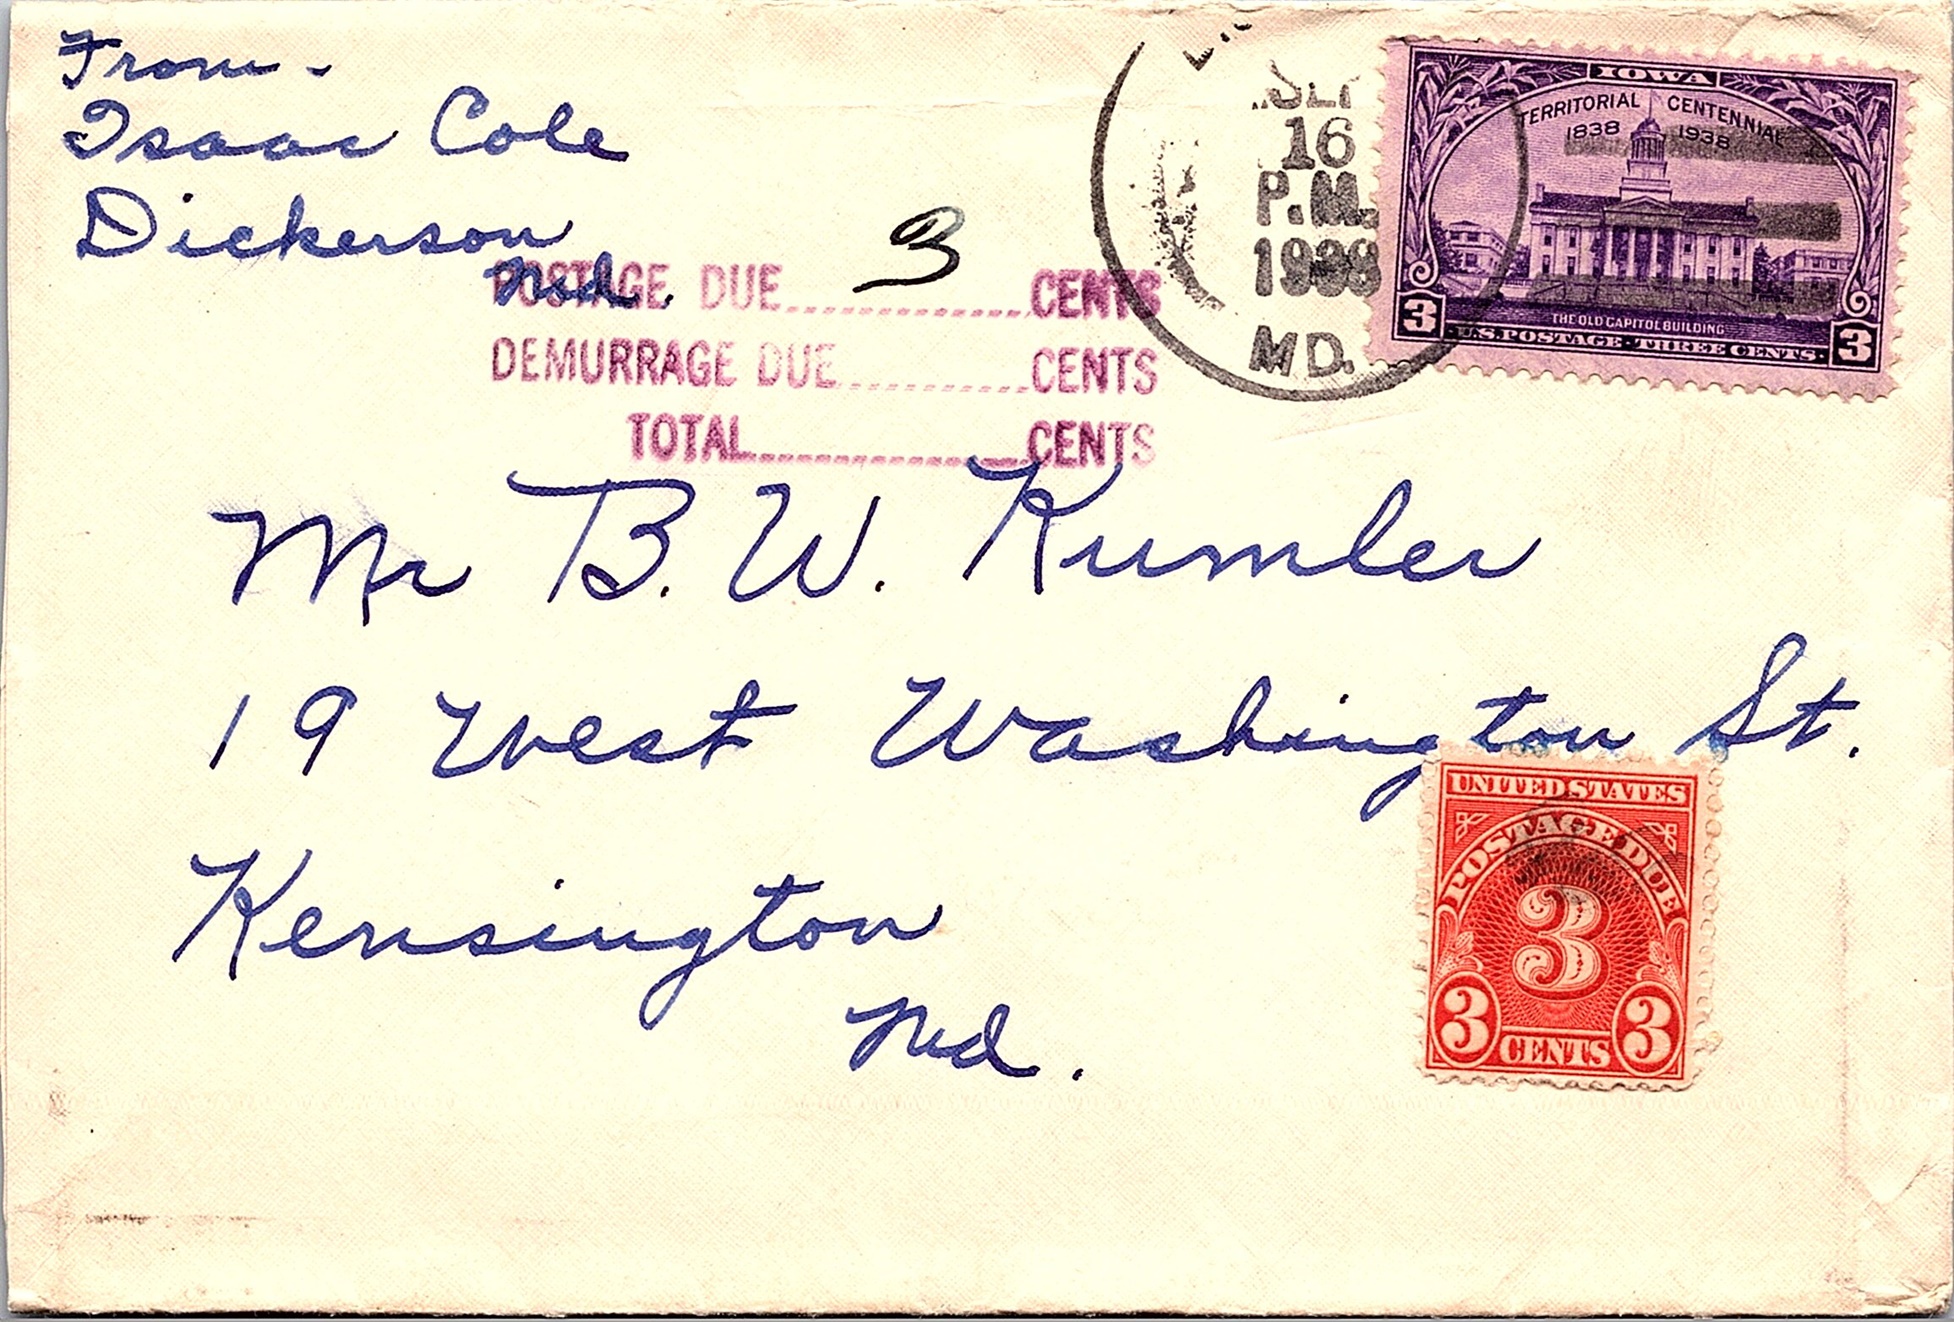 From -
Isaac Cole
Dickerson
Md.
POSTAGE DUE 3 CENTS
DEMURRAGE DUE CENTS
TOTAL CENTS
SEP
16
P.M.
1938
MD.
IOWA
TERRITORIAL CENTENNIAL
1838 1938
THE OLD CAPITOL BUILDING
3 U.S. POSTAGE · THREE CENTS · 3
Mr B. W. Kumler
19 West Washington St.
Kensington
Md.
UNITED STATES
POSTAGE DUE
3
3 CENTS 3